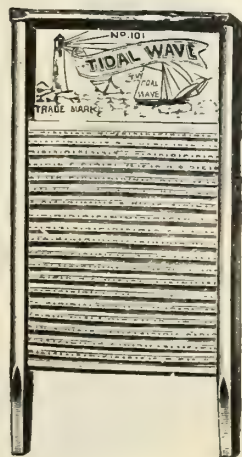 No. 101
TIDAL WAVE
TIDAL
WAVE
TRADE MARK